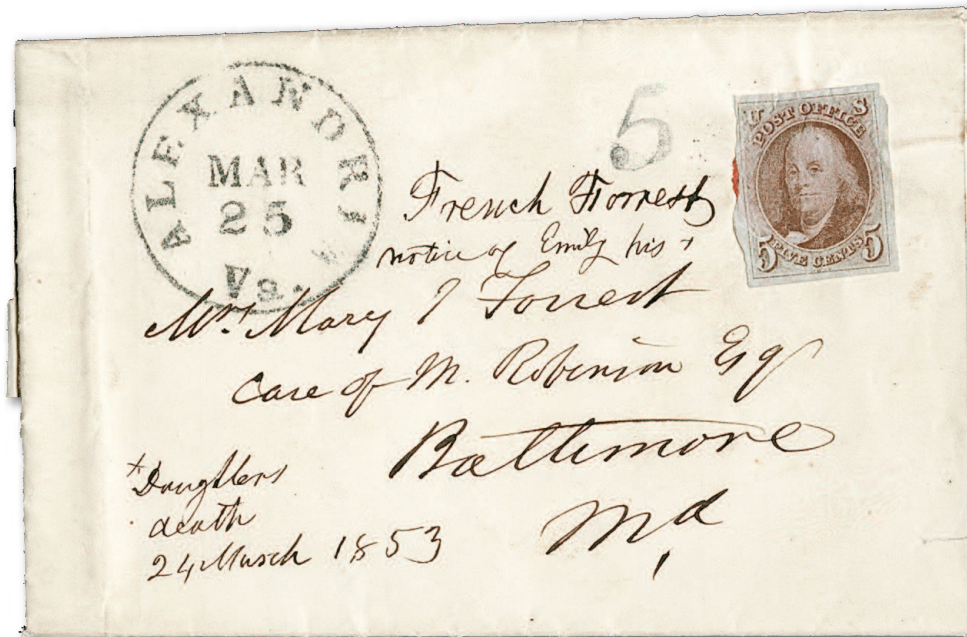 ALEXANDRIA
MAR
25
Va.
5
U S
POST OFFICE
5 FIVE CENTS 5
French Forrest
notice of Emily his +
Mrs Mary T Forrest
care of M. Robinson Esq
Baltimore
Md
+ Daughters
death
24 March 1853